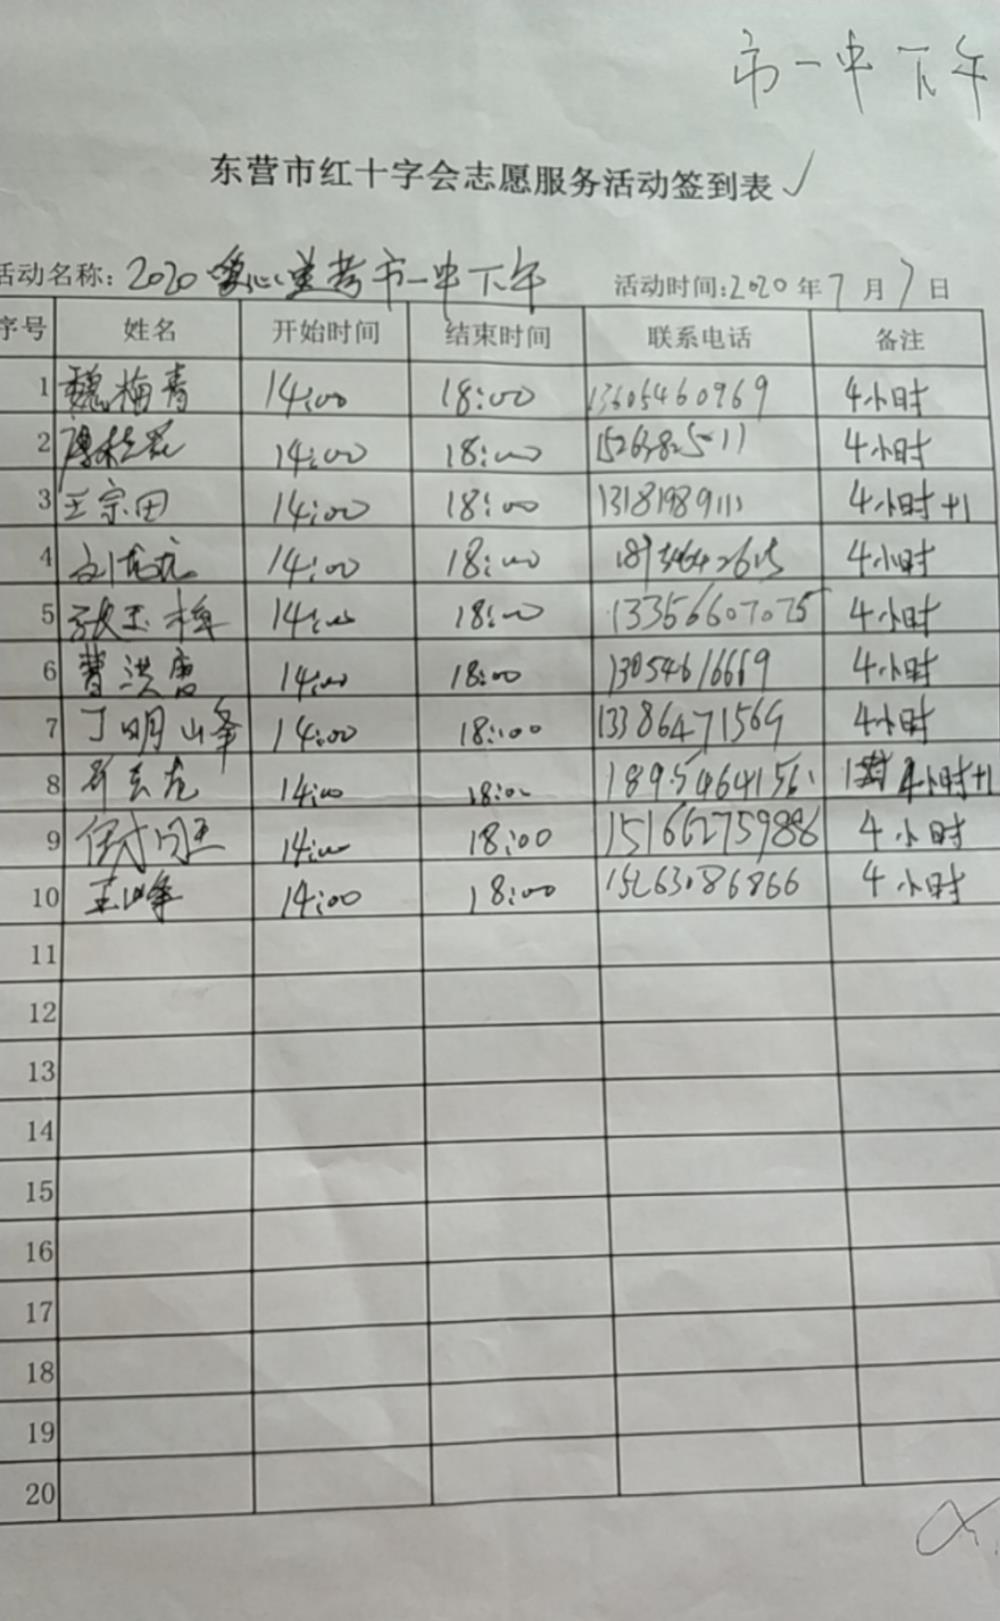 市一中下午
东营市红十字会志愿服务活动签到表✓
活动名称：2020爱心送考市一中下午 活动时间：2020年7月7日
序号 姓名 开始时间 结束时间 联系电话 备注
1 魏梅青 14:00 18:00 13605460969 4小时
2 14:00 18:00 15263825011 4小时
3 王宗田 14:00 18:00 13181989111 4小时+1
4 14:00 18:00 4小时
5 张玉梅 14:00 18:00 13356607075 4小时
6 曹洪唐 14:00 18:00 13054616669 4小时
7 丁明峰 14:00 18:00 13386471569 4小时
8 14:00 18:00 18954641561 4小时+1
9 14:00 18:00 15166275988 4小时
10 王峰 14:00 18:00 15263086866 4小时
11
12
13
14
15
16
17
18
19
20